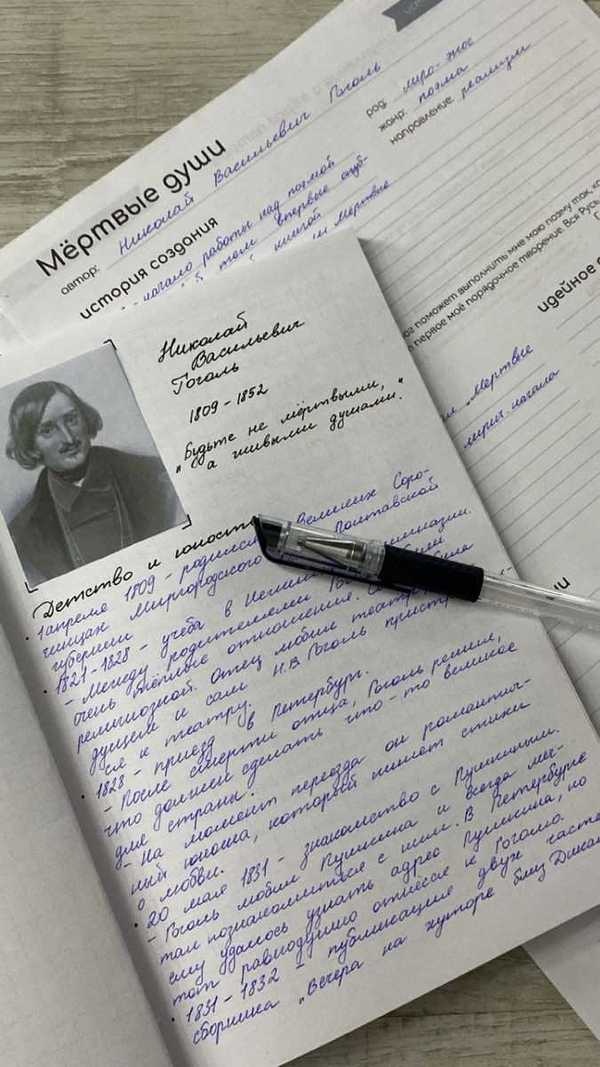 Мёртвые души
автор: Николай Васильевич Гоголь
род: лиро-эпос
жанр: поэма
направление: реализм
история создания
начало работы над поэмой
том впервые опуб-
книгой
Мертвые
поможет выполнить мне мою поэму так, ко
первое моё порядочное творение. Вся Русь
идейное
"Мертвые
начала
Николай
Васильевич
Гоголь
1809 - 1852
„Будьте не мёртвыми,
а живыми душами."
Детство и юность
• 1 апреля 1809 - родился Великих Соро-
чинцах Миргородского Полтавской
губернии
• 1821 - 1828 - учёба в гимназии.
- Между родителями были
очень тёплые отношения.
религиозной. Отец любил театр,
и сам Н.В Гоголь
ся к театру.
• 1828 - приезд в Петербург.
- После смерти отца, Гоголь решил,
что должен сделать что-то великое
для страны.
- На момент переезда он романтич-
ный юноша, который пишет стихи
о любви.
• 20 мая 1831 - знакомство с Пушкиным.
- Гоголь любил Пушкина и всегда меч-
тал познакомиться с ним. В Петербурге
ему удалось узнать адрес Пушкина, но
тот равнодушно отнёсся к Гоголю.
• 1831 - 1832 - публикация двух частей
сборника „Вечера на хуторе близ Дикань